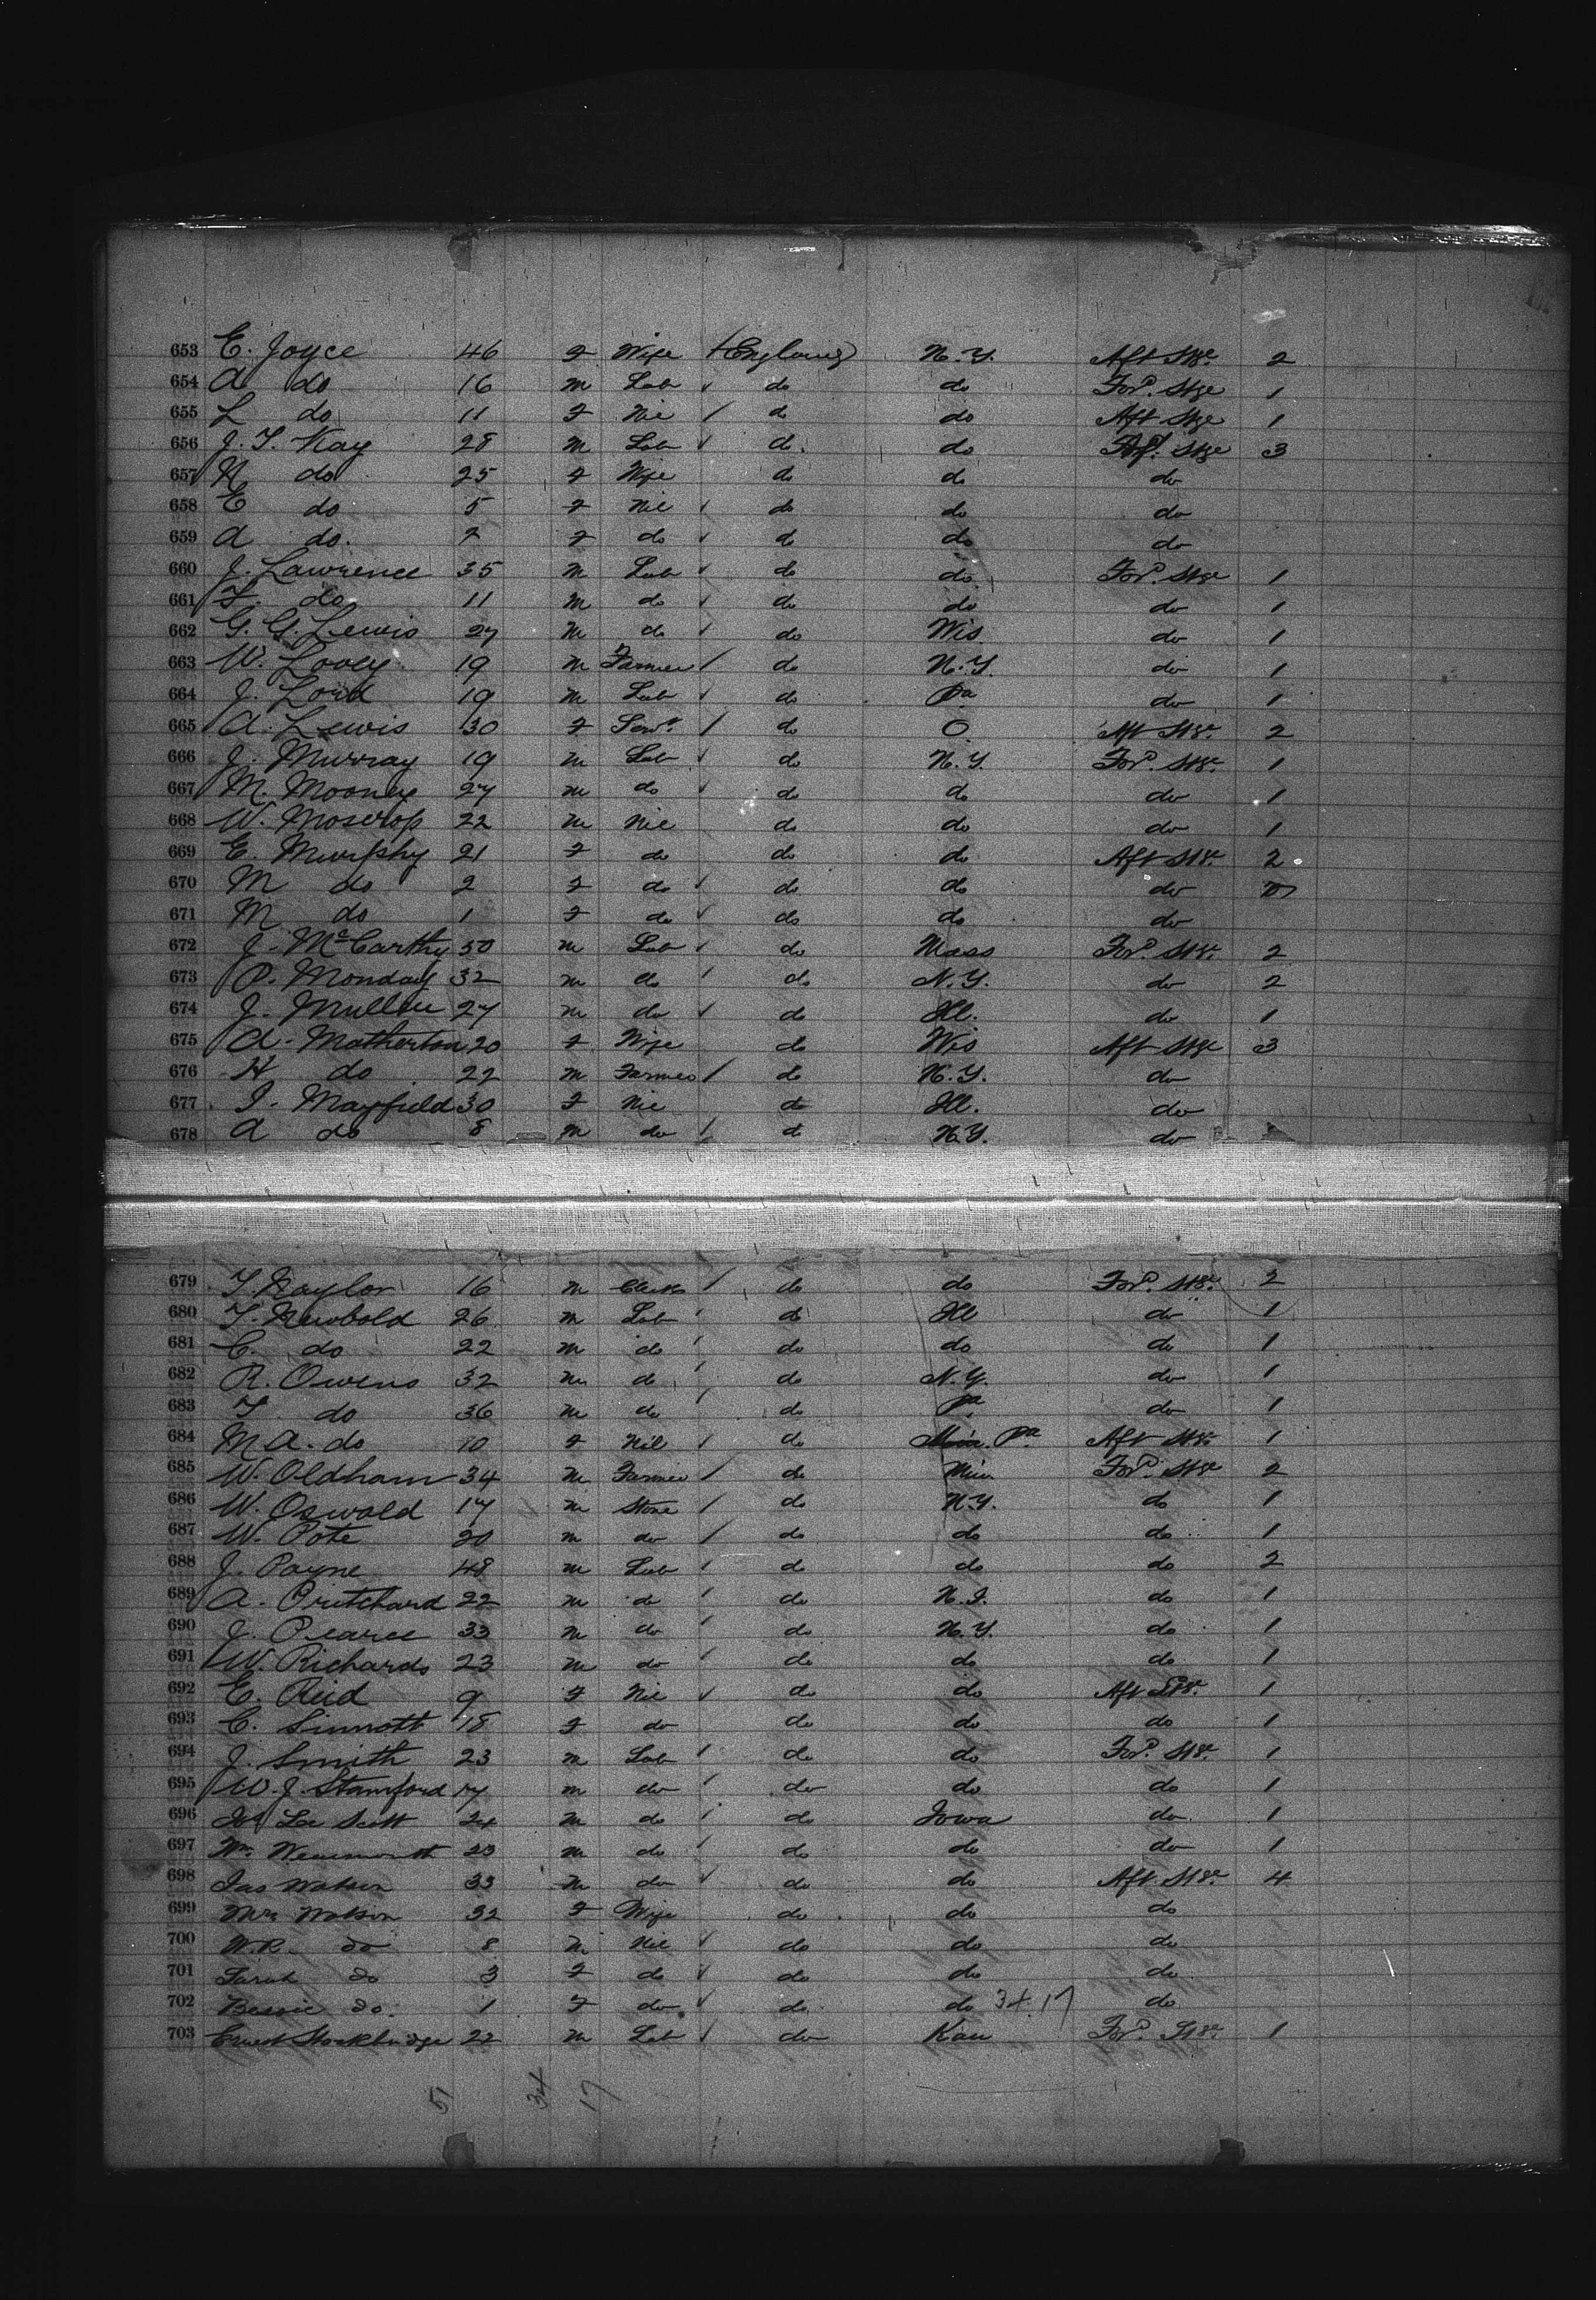 653 E. Joyce 46 F Wife / England N.Y. Aft Stge 2
654 A do 16 M Lab ✓ do do For'd. Stge 1
655 L do 11 F Nil / do do Aft Stge 1
656 J. T. Kay 28 M Lab ✓ do. do Aft. Stge 3
657 N do 25 F Wife do do do
658 E do 5 F Nil ✓ do do do
659 A do. 2 F do ✓ do do do
660 J. Lawrence 35 M Lab ✓ do do For'd. Stge 1
661 F. do 11 M do ✓ do do do 1
662 G. G. Lewis 27 M do ✓ do Wis do 1
663 W. Looey 19 M Farmer / do N.Y. do 1
664 J. Lord 19 M Lab ✓ do Pa do 1
665 A. Lewis 30 F Servt. / do O. Aft Stge. 2
666 J. Murray 19 M Lab ✓ do N.Y. For'd. Stge. 1
667 M. Mooney 27 M do ✓ do do do 1
668 W. Moscrop 22 M Nil do do do 1
669 E. Murphy 21 F do do do Aft Stge 2
670 M do 2 F do ✓ do do do
671 M do 1 F do ✓ do do do
672 J. McCarthy 50 M Lab ✓ do Mass For'd. Stge. 2
673 P. Monday 32 M do / do N.Y. do 2
674 J. Mullen 27 M do ✓ do Ill. do 1
675 A. Matherton 20 F. Wife do Wis Aft Stge 3
676 H do 22 M Farmer / do N.Y. do
677 I. Mayfield 30 F Nil do Ill. do
678 A do 8 M do / do N.Y. do
679 T. Naylor 16 M Clerk / do do For'd. Stge. 2
680 T. Newbold 26 M Lab / do Ill do 1
681 C. do 22 M do / do do do 1
682 R. Owens 32 M do / do N.Y. do 1
683 T. do 36 M do / do Pa. do 1
684 M A. do 10 F Nil / do Pa Aft Stge 1
685 W. Oldham 34 M Farmer / do Min For'd. Stge 2
686 W. Oswald 17 M Stone / do N.Y. do 1
687 W. Pote 20 M do / do do do 1
688 J. Payne 48 M Lab / do do do 2
689 A. Pritchard 22 M do / do N.J. do 1
690 J. Pearce 33 M do / do N.Y. do 1
691 W. Richards 23 M do / do do do 1
692 E. Reid 9 F Nil ✓ do do Aft Stge. 1
693 C. Sinnott 18 F do do do do 1
694 J. Smith 23 M Lab / do do For'd. Stge. 1
695 W. J. Stamford 17 M do / do do do 1
696 Lee Scott 24 M do / do Iowa do 1
697 Wm. 23 M do / do do do 1
698 Jas Watson 33 M do ✓ do do Aft. Stge. 4
699 Mrs Watson 32 F Wife do do do
700 W.R. do 8 M Nil ✓ do do do
701 Sarah do 3 F do ✓ do do do
702 Bessie do. 1 F do ✓ do do 34.17 do
703 Ernest Stockbridge 22 M Lab ✓ do Kan For'd. Stge. 1
51 34 17